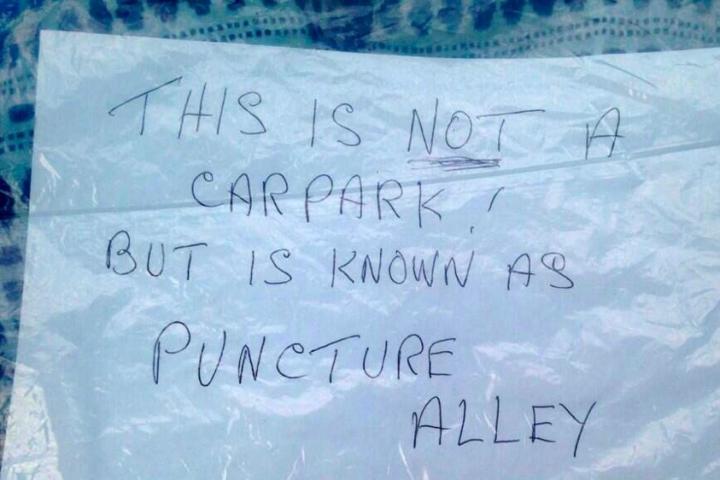 THIS IS NOT A
CARPARK!
BUT IS KNOWN AS
PUNCTURE
ALLEY